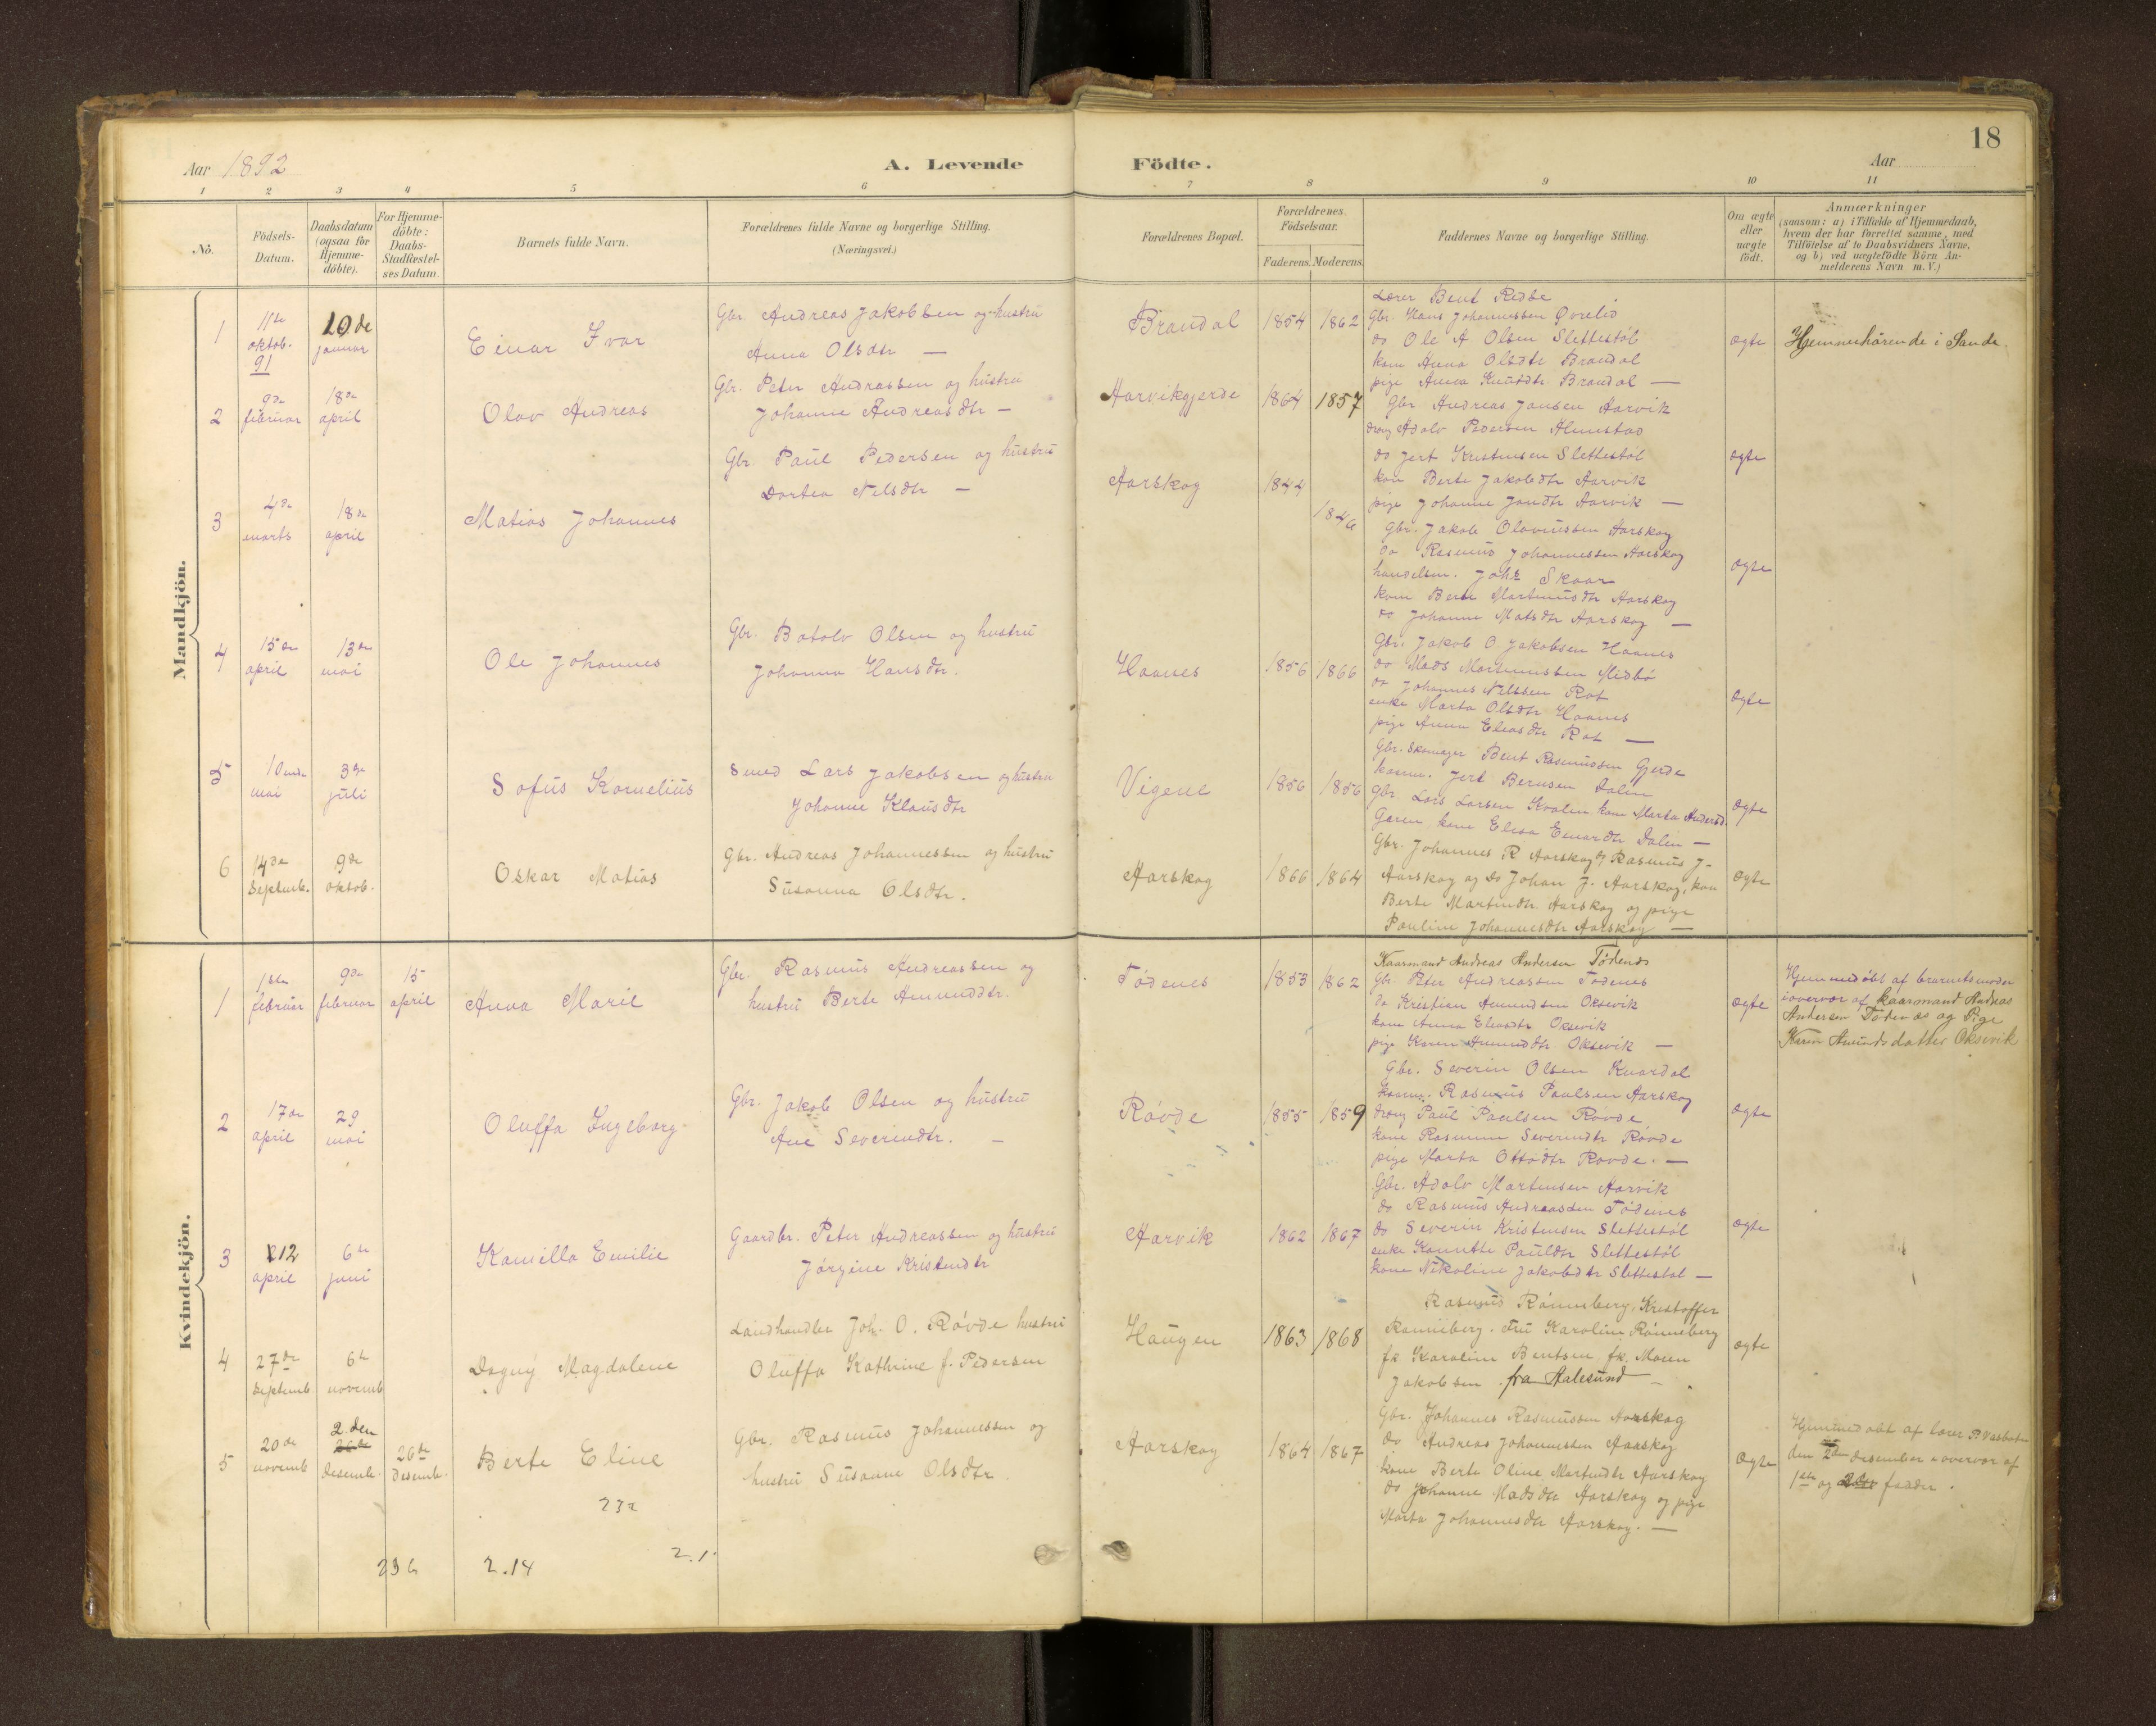 18
Aar 1892
A. Levende Födte.
Aar
1 2 3 4 5 6 7 8 9 10 11
No.
Födsels-Datum.
Daabsdatum (ogsaa for Hjemme-döbte).
For Hjemme-döbte: Daabs-Stadfæstel-ses Datum.
Barnets fulde Navn.
Forældrenes fulde Navne og borgerlige Stilling. (Næringsvei.)
Forældrenes Bopæl.
Forældrenes Födselsaar.
Faderens. Moderens.
Faddernes Navne og borgerlige Stilling.
Om ægte eller uægte födt.
Anmærkninger
(saasom: a) i Tilfælde af Hjemmedaab,
hvem der har forrettet samme, med
Tilföielse af to Daabsvidners Navne,
og b) ved uægtefödte Börn An-
melderens Navn m. V.)
Mandkjön.
1
11te oktob. 91
10de januar
Einar Ivar
Gbr. Andreas Jakobsen og hustru
Anna Olsdtr —
Brandal
1854 1862
Lærer Bent Rødbe
Gbr. Hans Johannessen Øvrelid
do Ole A Olsen Slettestøl
kone Anna Olsdtr Brandal
pige Anna Knutdtr. Brandal —
ægte
Hjemmehörende i Sande.
2
9de februar
18de april
Olav Andreas
Gbr. Peter Andreassen og hustru
Johanne Andreasdtr —
Aarvikgjerde
1864 1857
Gbr Andreas Jansen Aarvik
dreng Adolv Pedersen Almestad
do Jert Kristensen Slettestøl
kon Berte Jakobdtr Aarvik
pige Johanne Jandtr Aarvik —
ægte
3
4de marts
18de april
Matias Johannes
Gbr. Paul Pedersen og hustru
Dortea Nilsdtr —
Aarskog
1844 1846
Gbr. Jakob Olavussen Aarskog
do Rasmus Johannessen Aarskog
handelsm. Johs Skaar
kone Berte Martinusdtr Aarskog
do Johanne Matsdtr Aarskog —
ægte
4
15de april
13de mai
Ole Johannes
Gbr. Botolv Olsen og hustru
Johanna Hansdtr.
Haanes
1856 1866
Gbr. Jakob O. Jakobsen Haanes
do Mads Martinussen Midbø
do Johannes Nilssen Rot
enke Marta Olsdtr Haanes
pige Anna Eliasdtr Rot —
ægte
5
10nde mai
3de juli
Sofus Kornelius
Smed Lars Jakobsen og hustru
Johanne Klausdtr
Vigene
1856 1856
Gbr. Skomager Bent Rasmussen Gjerde
Jert Berntsen Dalen
Gbr Lars Larsen Kvalen kone Marta Andersd.
kone Elisa Einardtr Dalen —
ægte
6
14de Septemb.
9de oktob.
Oskar Matias
Gbr. Andreas Johannessen og hustru
Susanna Olsdtr.
Aarskog
1866 1864
Gbr. Johannes R Aarskog Rasmus J-
Aarskog og do Johan J. Aarskog, kon
Berte Martindtr Aarskog og pige
Pauline Johannesdtr Aarskog —
ægte
Kvindekjön.
1
1ste februar
9de februar
15 april
Anna Marie
Gbr. Rasmus Andreassen og
hustru Berte Amunddtr.
Tødenes
1853 1862
Kaarmand Andreas Andersen Tødenes
Gbr. Peter Andreassen Tødenes
do Kristian Amundsen Oksevik
kone Anna Eliasdtr Oksevik
pige Karen Amunddtr Oksevik —
ægte
Hjemmedøbt af barnets moder
i overvær af kaarmand Andreas
Andersen Tødenes og Pige
Karen Amundsdatter Oksevik
2
17de april
29 mai
Oluffa Ingeborg
Gbr. Jakob Olsen og hustru
Ane Severindtr. —
Røvde
1855 1859
Gbr. Severin Olsen Knardal
Rasmus Paulsen Aarskog
dreng Paul Paulsen Røvde
kone Rasmine Severindtr Røvde
pige Marta Ottodtr Røvde. —
ægte
3
12 april
6te juni
Kamilla Emilie
Gaardbr. Peter Andreassen og hustru
Jørgine Kristendtr
Aarvik
1862 1867
Gbr. Adolv Martinsen Aarvik
do Rasmus Andreassen Tødenes
do Severin Kristensen Slettestøl
enke Kanutte Pauldtr Slettestøl
kone Nikoline Jakobdtr Slettestøl —
ægte
4
27de Septemb
6te novemb
Dagny Magdalene
Landhandler Joh. O. Røvde hustru
Oluffa Kathrine f. Pedersen
Haugen
1863 1868
Rasmus Rønneberg, Kristoffer
Rønneberg. Fru Karoline Rønneberg
fk Karoline Bentsen fk. Maren
Jakobsen fra Aalesund —
ægte
5
20de novemb
2.den desemb.
26de desemb.
Berte Eline
Gbr. Rasmus Johannessen og
hustru Susanne Olsdtr.
Aarskog
1864 1867
Gbr. Johannes Rasmussen Aarskog
do Andreas Johannessen Aarskog
kone Berte Oline Martindtr Aarskog
do Johanne Madsdtr Aarskog og pige
Marta Johannesdtr Aarskog. —
Ægte
Hjemmedøbt af lærer P. Vasbotn
den 2den desember i overvær af
1ste og fadder.
232
236
2.14
2.1